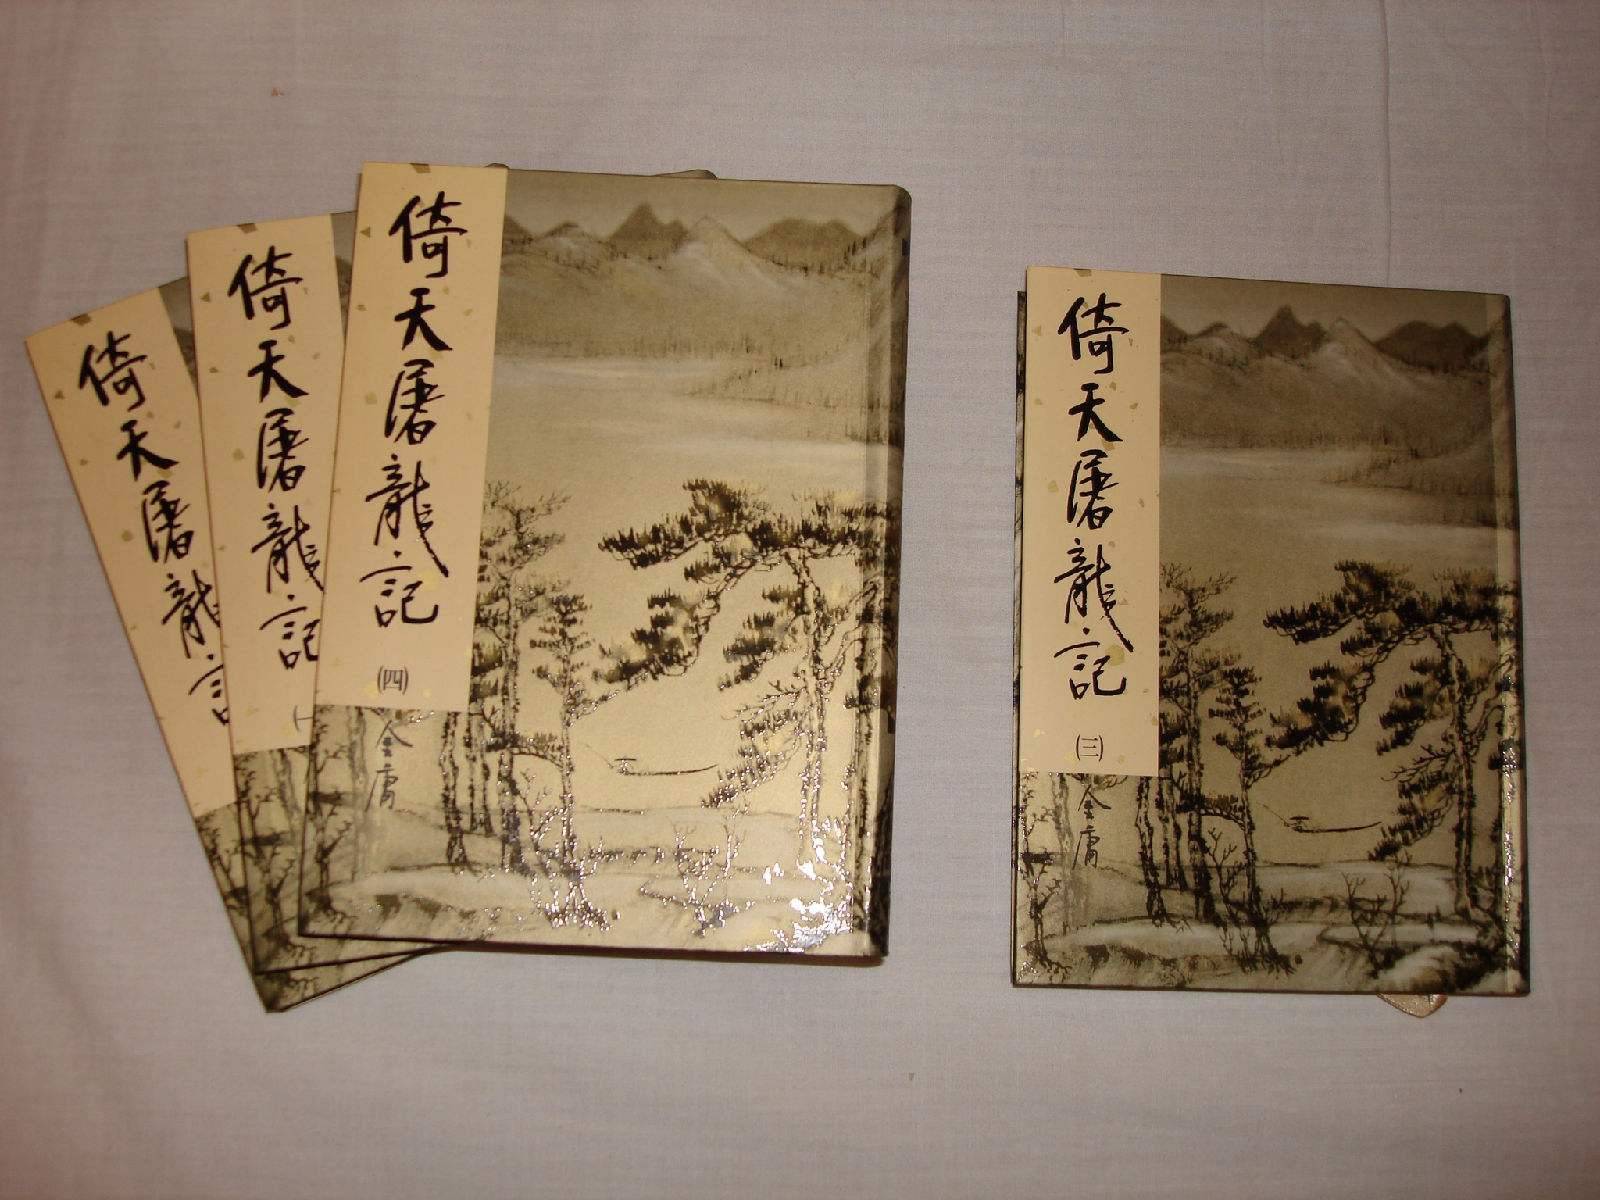 倚天屠龍
倚天屠龍記
倚天屠龍記
㈣
金庸
倚天屠龍記
㈢
金庸